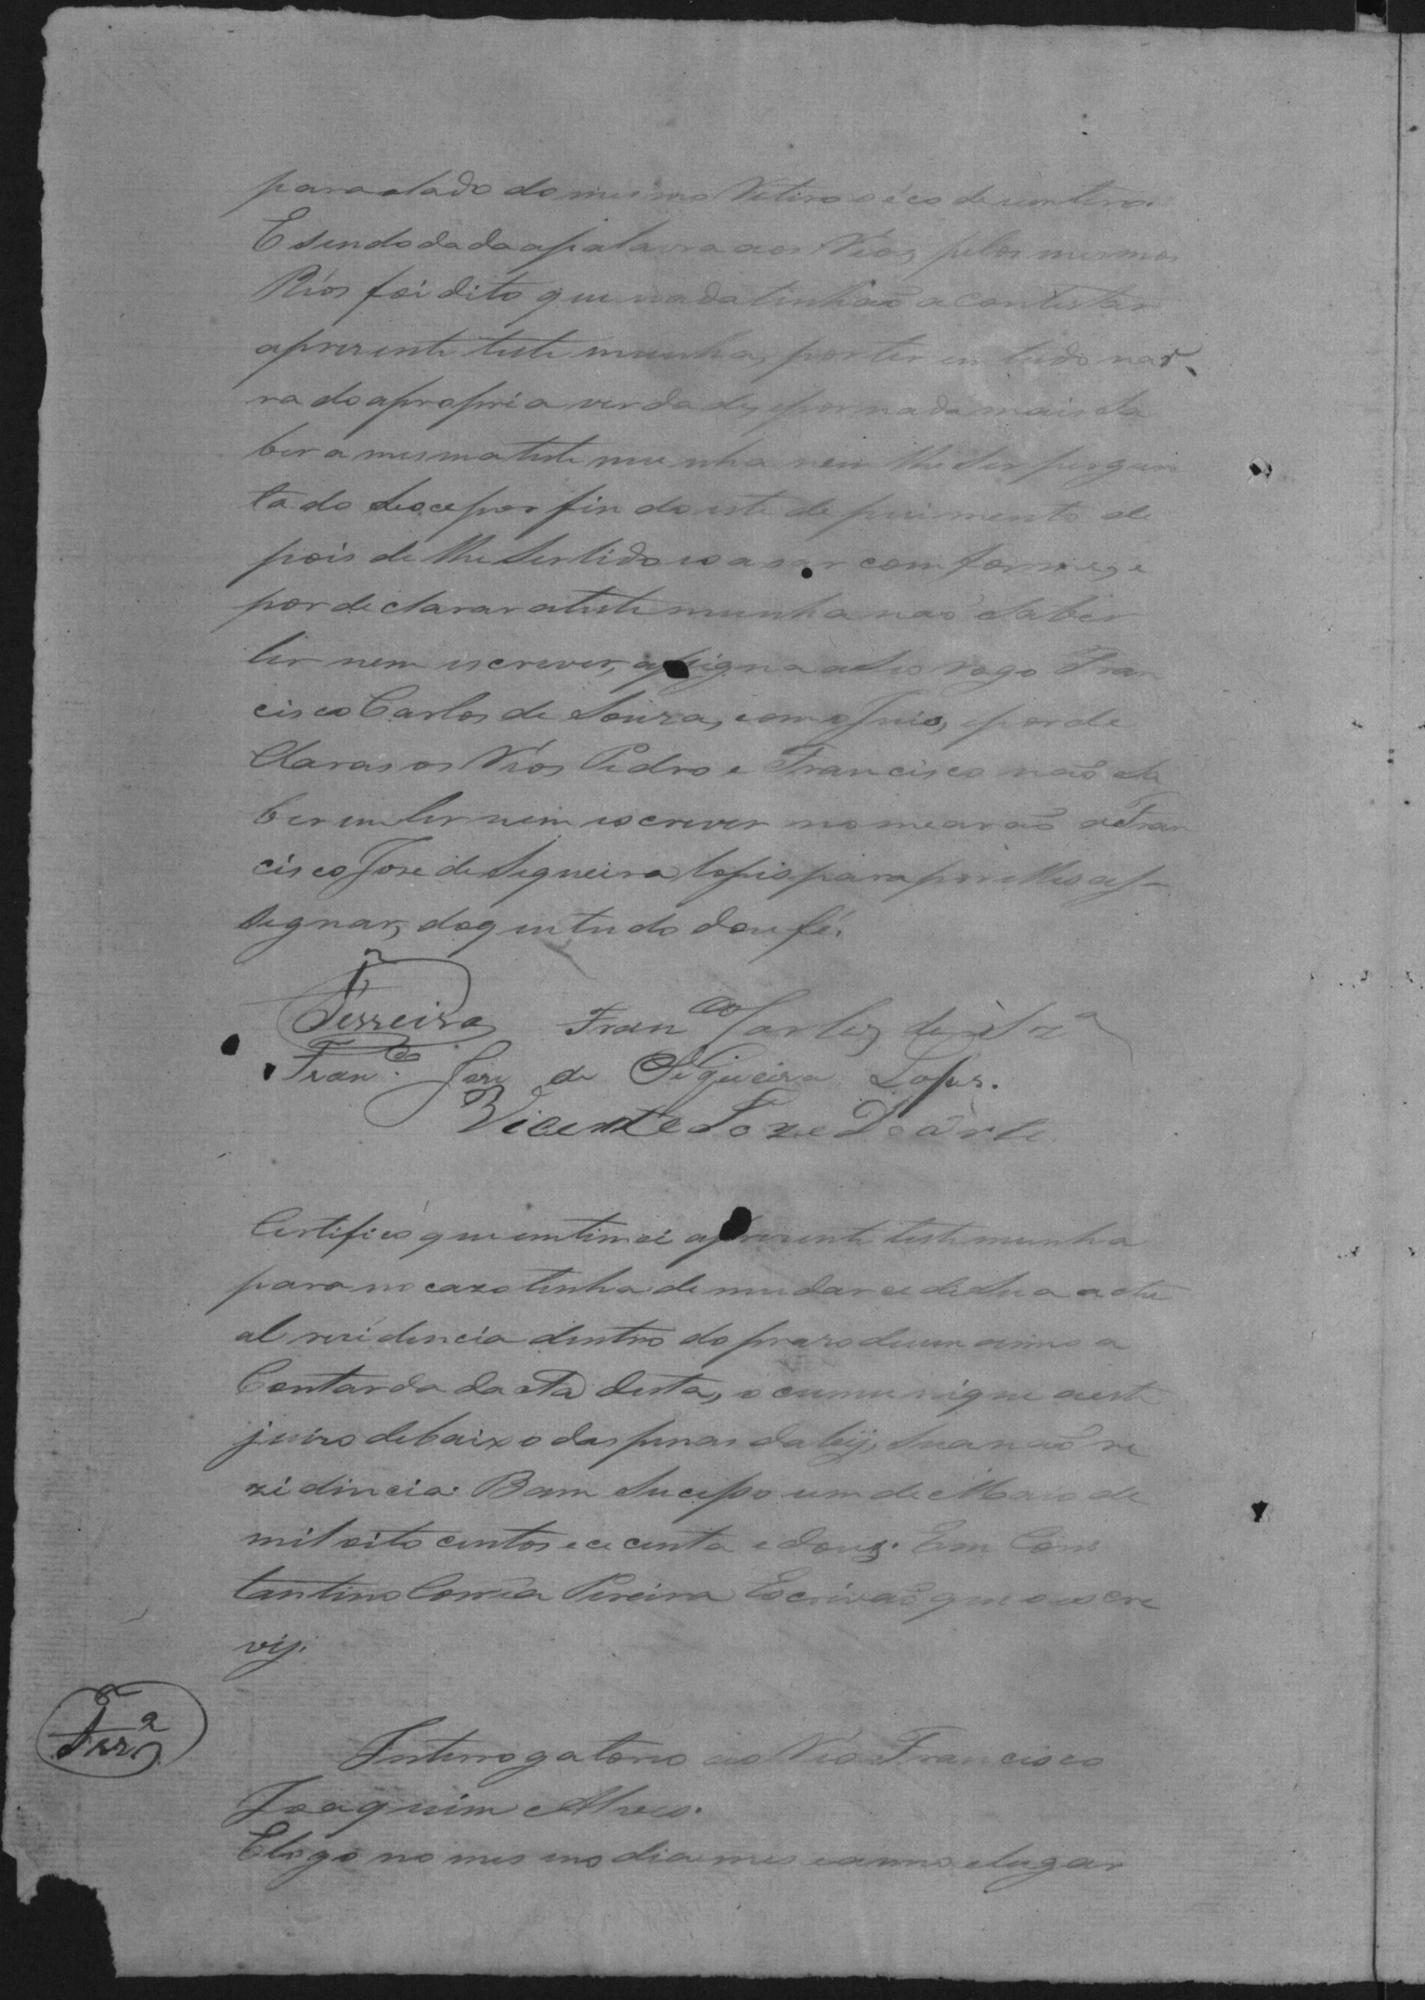 para o lado do mesmo Retiro o éco de um tiro.
E sendo dada a palavra aos Réos, pelos mesmos
Réos foi dito que nada tinhão a contestar
apresente testemunha, por ter em tudo nar-
rado a propria verdade, e por nada mais sa
ber a mesma testemunha nem lhe ser pergun
tado deo se por findo este depuimento de
pois de lhe ser lido e o axar comforme, e
por declarar a testemunha não saber
ler nem escrever, assigna a seo rogo Fran
cisco Carlos de Souza, com o Juis, e por de
clararos Réos Pedro e Francisco não sa
berem ler nem escrever nomearão a Fran
cisco Jose de Siqueira Lopis para por elles as-
signar, do que tudo dou fé.
Ferreira Fran.co Carlos de Sza
Fran.co Jose de Siqueira Lopes.
Vicente Joze Doarte
Certifico que entimei apresente testemunha
para no cazo tenha de mudar se de sua actu
al residencia dentro do prazo de um anno a
Contar da data desta, o cumunique a este
juizo debaixo das penas da leij, sua não re
zidincia. Bom Sucesso um de Maio de
mil oito centos e cecenta e dous. Eu Cons
tantino Corrêa Pereira Escrivão que o escre
vij.
Ferra
Interrogatorio ao Réo Francisco
Joaquim Alves.
E logo no mesmo dia mes e anno e lugar